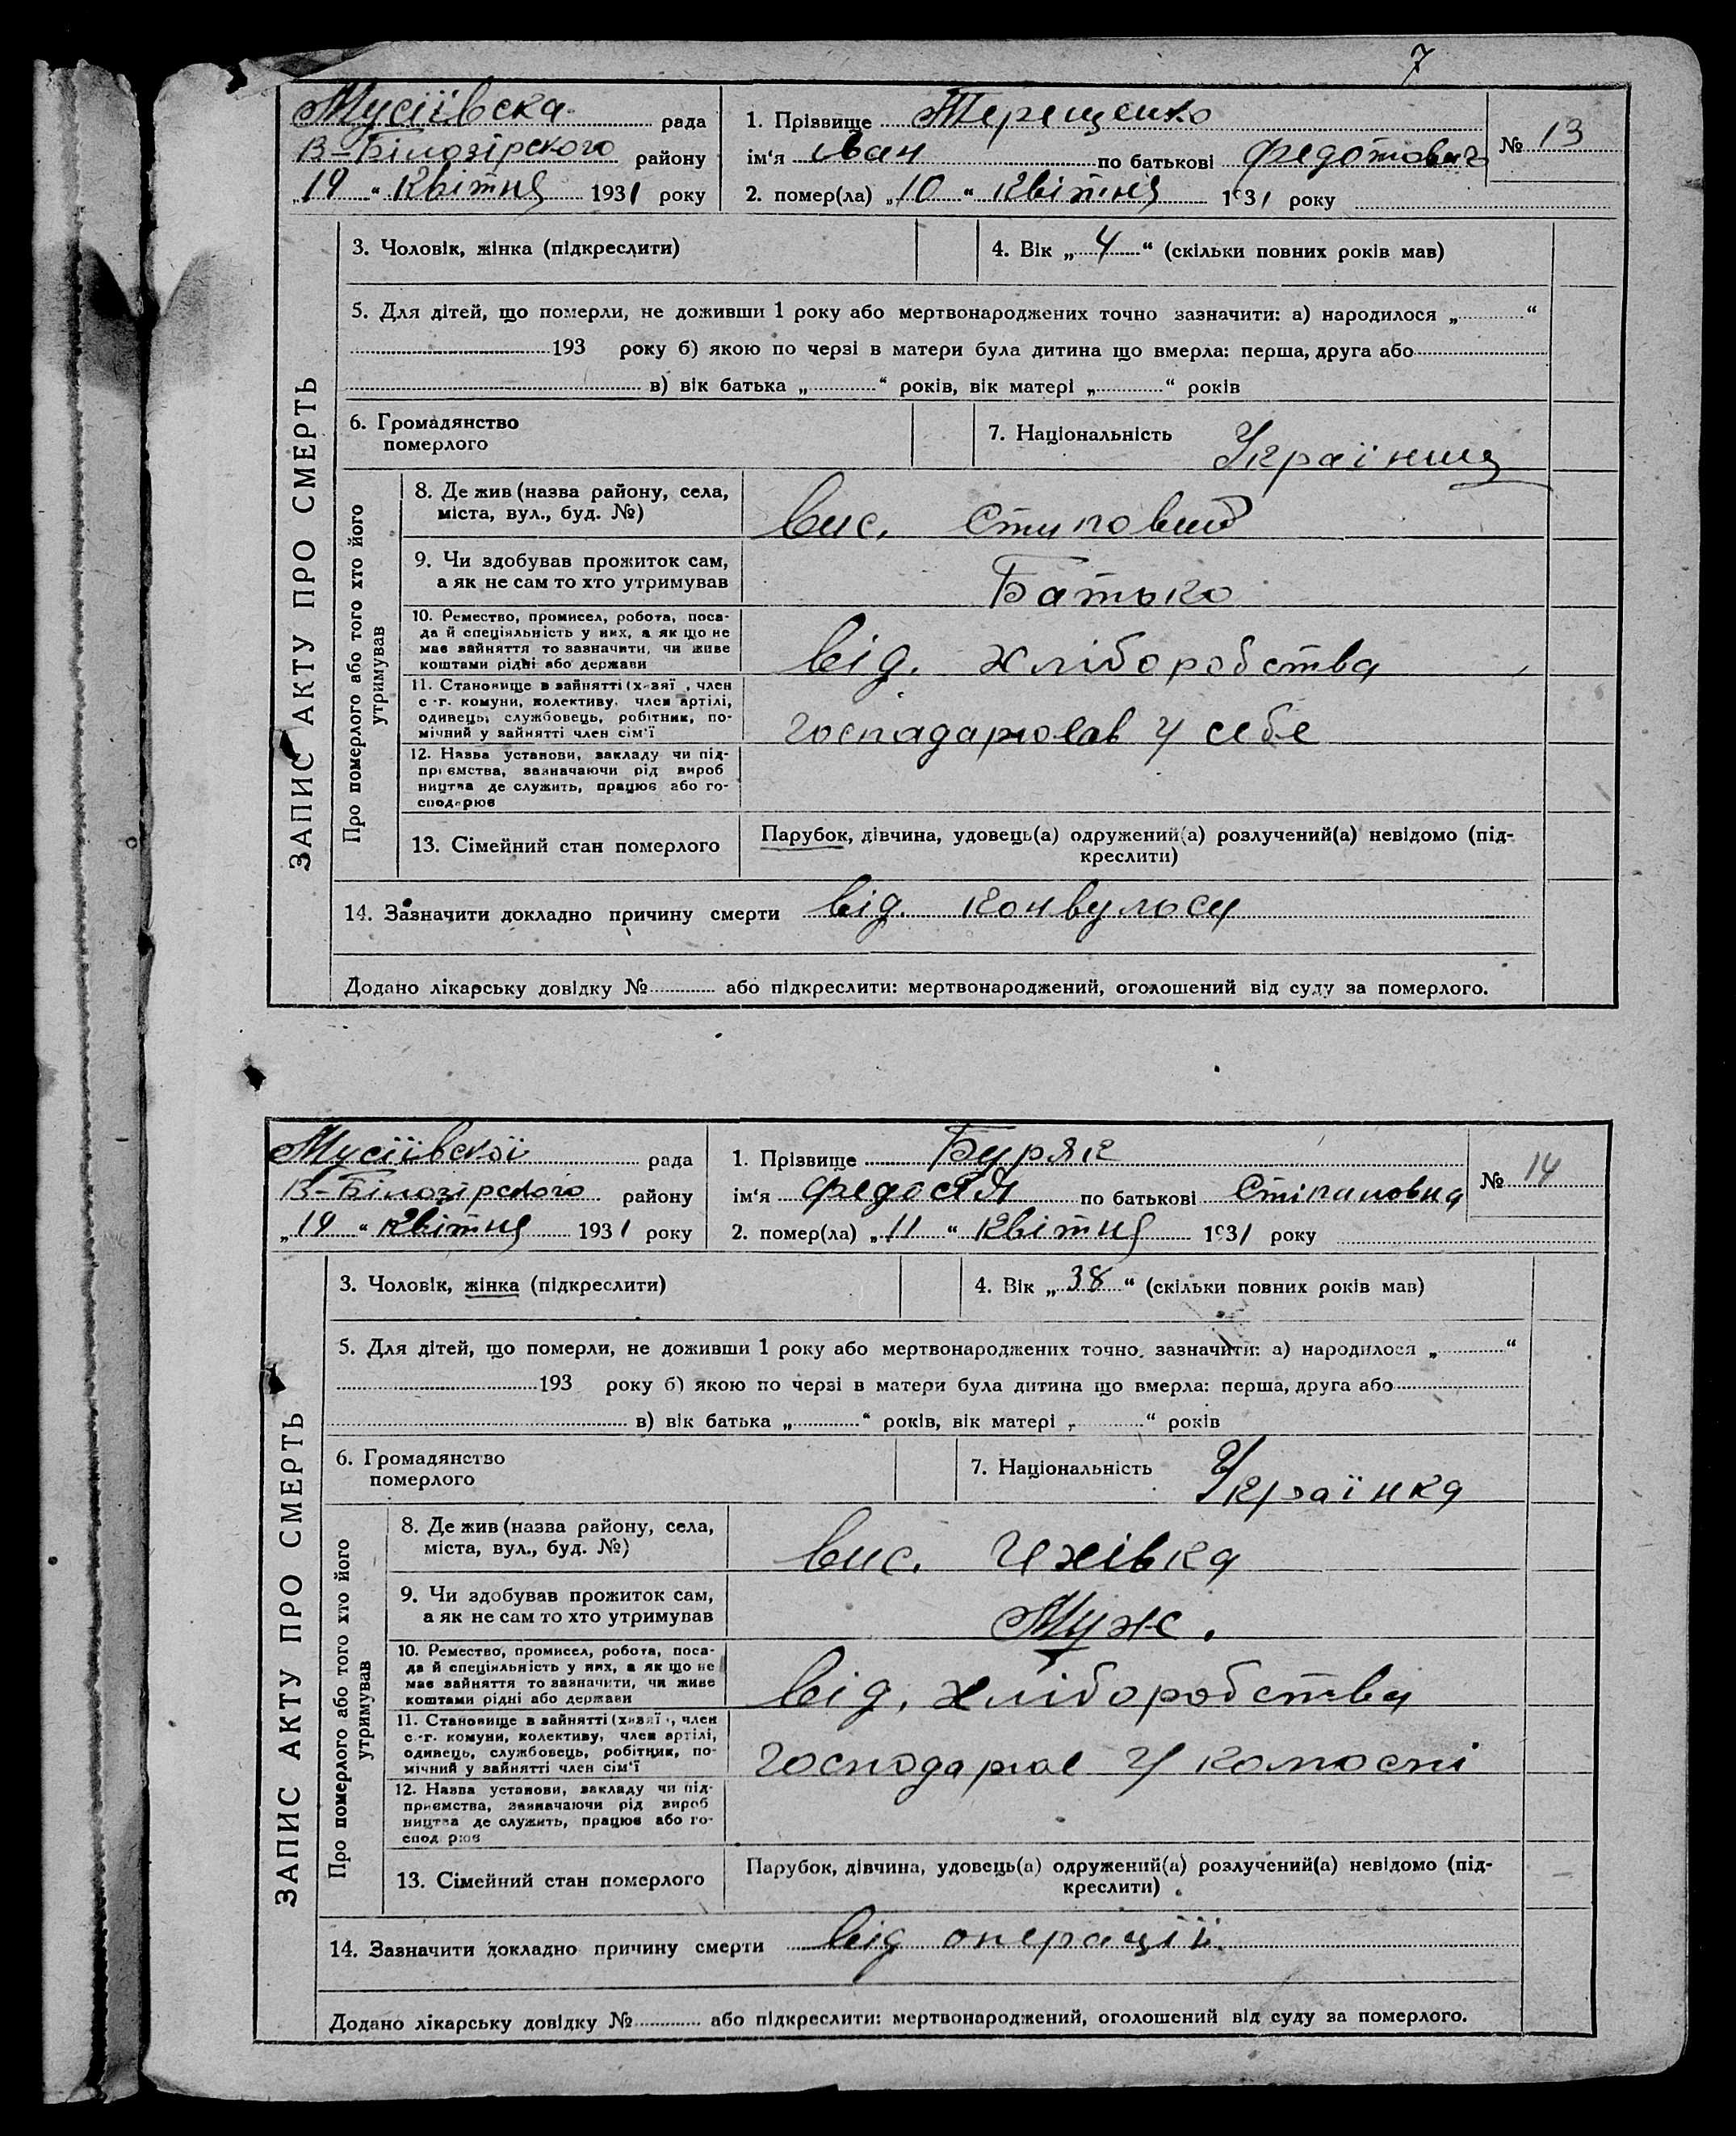 7
Мусіївска рада
В-Білозірского району
„19 “ квітня 1931 року
1. Прізвище Терещенко
ім‘я Іван по батькові Федотович
2. помер(ла) „10 “ квітня 1931 року
№ 13
ЗАПИС АКТУ ПРО СМЕРТЬ
3. Чоловік, жінка (підкреслити)
4. Вік „ 4 “ (скільки повних років мав)
5. Для дітей, що померли, не доживши 1 року або мертвонароджених точно зазначити: а) народилося „ “
193 року б) якою по черзі в матери була дитина що вмерла: перша, друга або
в) вік батька „ “ років, вік матері „ “ років
6. Громадянство
померлого
7. Національність Українец
Про померлого або того хто його
утримував
8. Де жив (назва району, села,
міста, вул., буд. №)
вис.
9. Чи здобував прожиток сам,
а як не сам то хто утримував
Батько
10. Ремество, промисел, робота, поса-
да й спеціяльність у них, а як що не
має зайняття то зазначити, чи живе
коштами рідні або держави
від. хліборобства
11. Становище в зайнятті (хазяї , член
с.-г. комуни, колективу, член артілі,
одинець, службовець, робітник, по-
мічний у зайнятті член сім‘ї
господарював у себе
12. Назва установи, закладу чи під-
приємства, зазначаючи рід вироб
ництва де служить, працює або го-
сподарює
13. Сімейний стан померлого
Парубок, дівчина, удовець(а) одружений(а) розлучений(а) невідомо (під-
креслити)
14. Зазначити докладно причину смерти від. конвульсу
Додано лікарську довідку № або підкреслити: мертвонароджений, оголошений від суду за померлого.
Мусіївскої рада
В-Білозірского району
„19 “ квітня 1931 року
1. Прізвище Буряк
ім‘я Федосія по батькові Стіпановна
2. помер(ла) „11 “ квітня 1931 року
№ 14
ЗАПИС АКТУ ПРО СМЕРТЬ
3. Чоловік, жінка (підкреслити)
4. Вік „ 38 “ (скільки повних років мав)
5. Для дітей, що померли, не доживши 1 року або мертвонароджених точно зазначити: а) народилося „ “
193 року б) якою по черзі в матери була дитина що вмерла: перша, друга або
в) вік батька „ “ років, вік матері „ “ років
6. Громадянство
померлого
7. Національність Українка
Про померлого або того хто його
утримував
8. Де жив (назва району, села,
міста, вул., буд. №)
вис.
9. Чи здобував прожиток сам,
а як не сам то хто утримував
Муж.
10. Ремество, промисел, робота, поса-
да й спеціяльність у них, а як що не
має зайняття то зазначити, чи живе
коштами рідні або держави
від. хліборобства
11. Становище в зайнятті (хазяї , член
с.-г. комуни, колективу, член артілі,
одинець, службовець, робітник, по-
мічний у зайнятті член сім‘ї
господарює у комосні
12. Назва установи, закладу чи під-
приємства, зазначаючи рід вироб
ництва де служить, працює або го-
спод рює
13. Сімейний стан померлого
Парубок, дівчина, удовець(а) одружений(а) розлучений(а) невідомо (під-
креслити)
14. Зазначити докладно причину смерти від операції.
Додано лікарську довідку № або підкреслити: мертвонароджений, оголошений від суду за померлого.